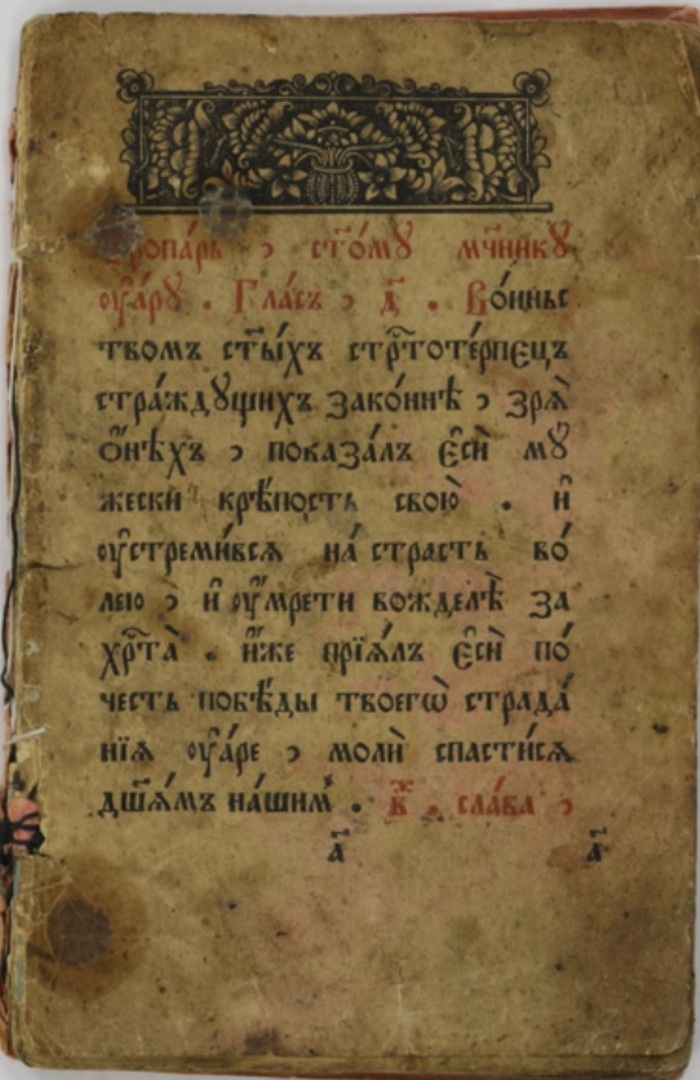 Тропа́рь , ст҃о́мꙋ мч҃никꙋ
ᲂу҆а́рꙋ . Гла́съ , д҃ . Во́иньс
твомъ ст҃ы́хъ стрⷭ҇тоте́рпєцъ
стра́ждꙋщихъ зако́ннѣ , зрѧ̀
ѻ҆́нѣхъ , показа́лъ є҆сѝ мꙋ
жески крѣ́пость свою̀ . и҆
ᲂу҆стреми́всѧ на́ страсть во́
лею , и҆ ᲂу҆́мрети вожделѣ̀ за
хрⷭ҇та̀ . и҆́же прїѧ́лъ є҆сѝ по́
честь побѣ́ды твоегѡ̀ страда́
нїѧ ᲂу҆а́ре , молѝ спасти́сѧ
дш҃ѧ́мъ на́шим̾ . к҃ . сла́ва ,
а҃ а҃